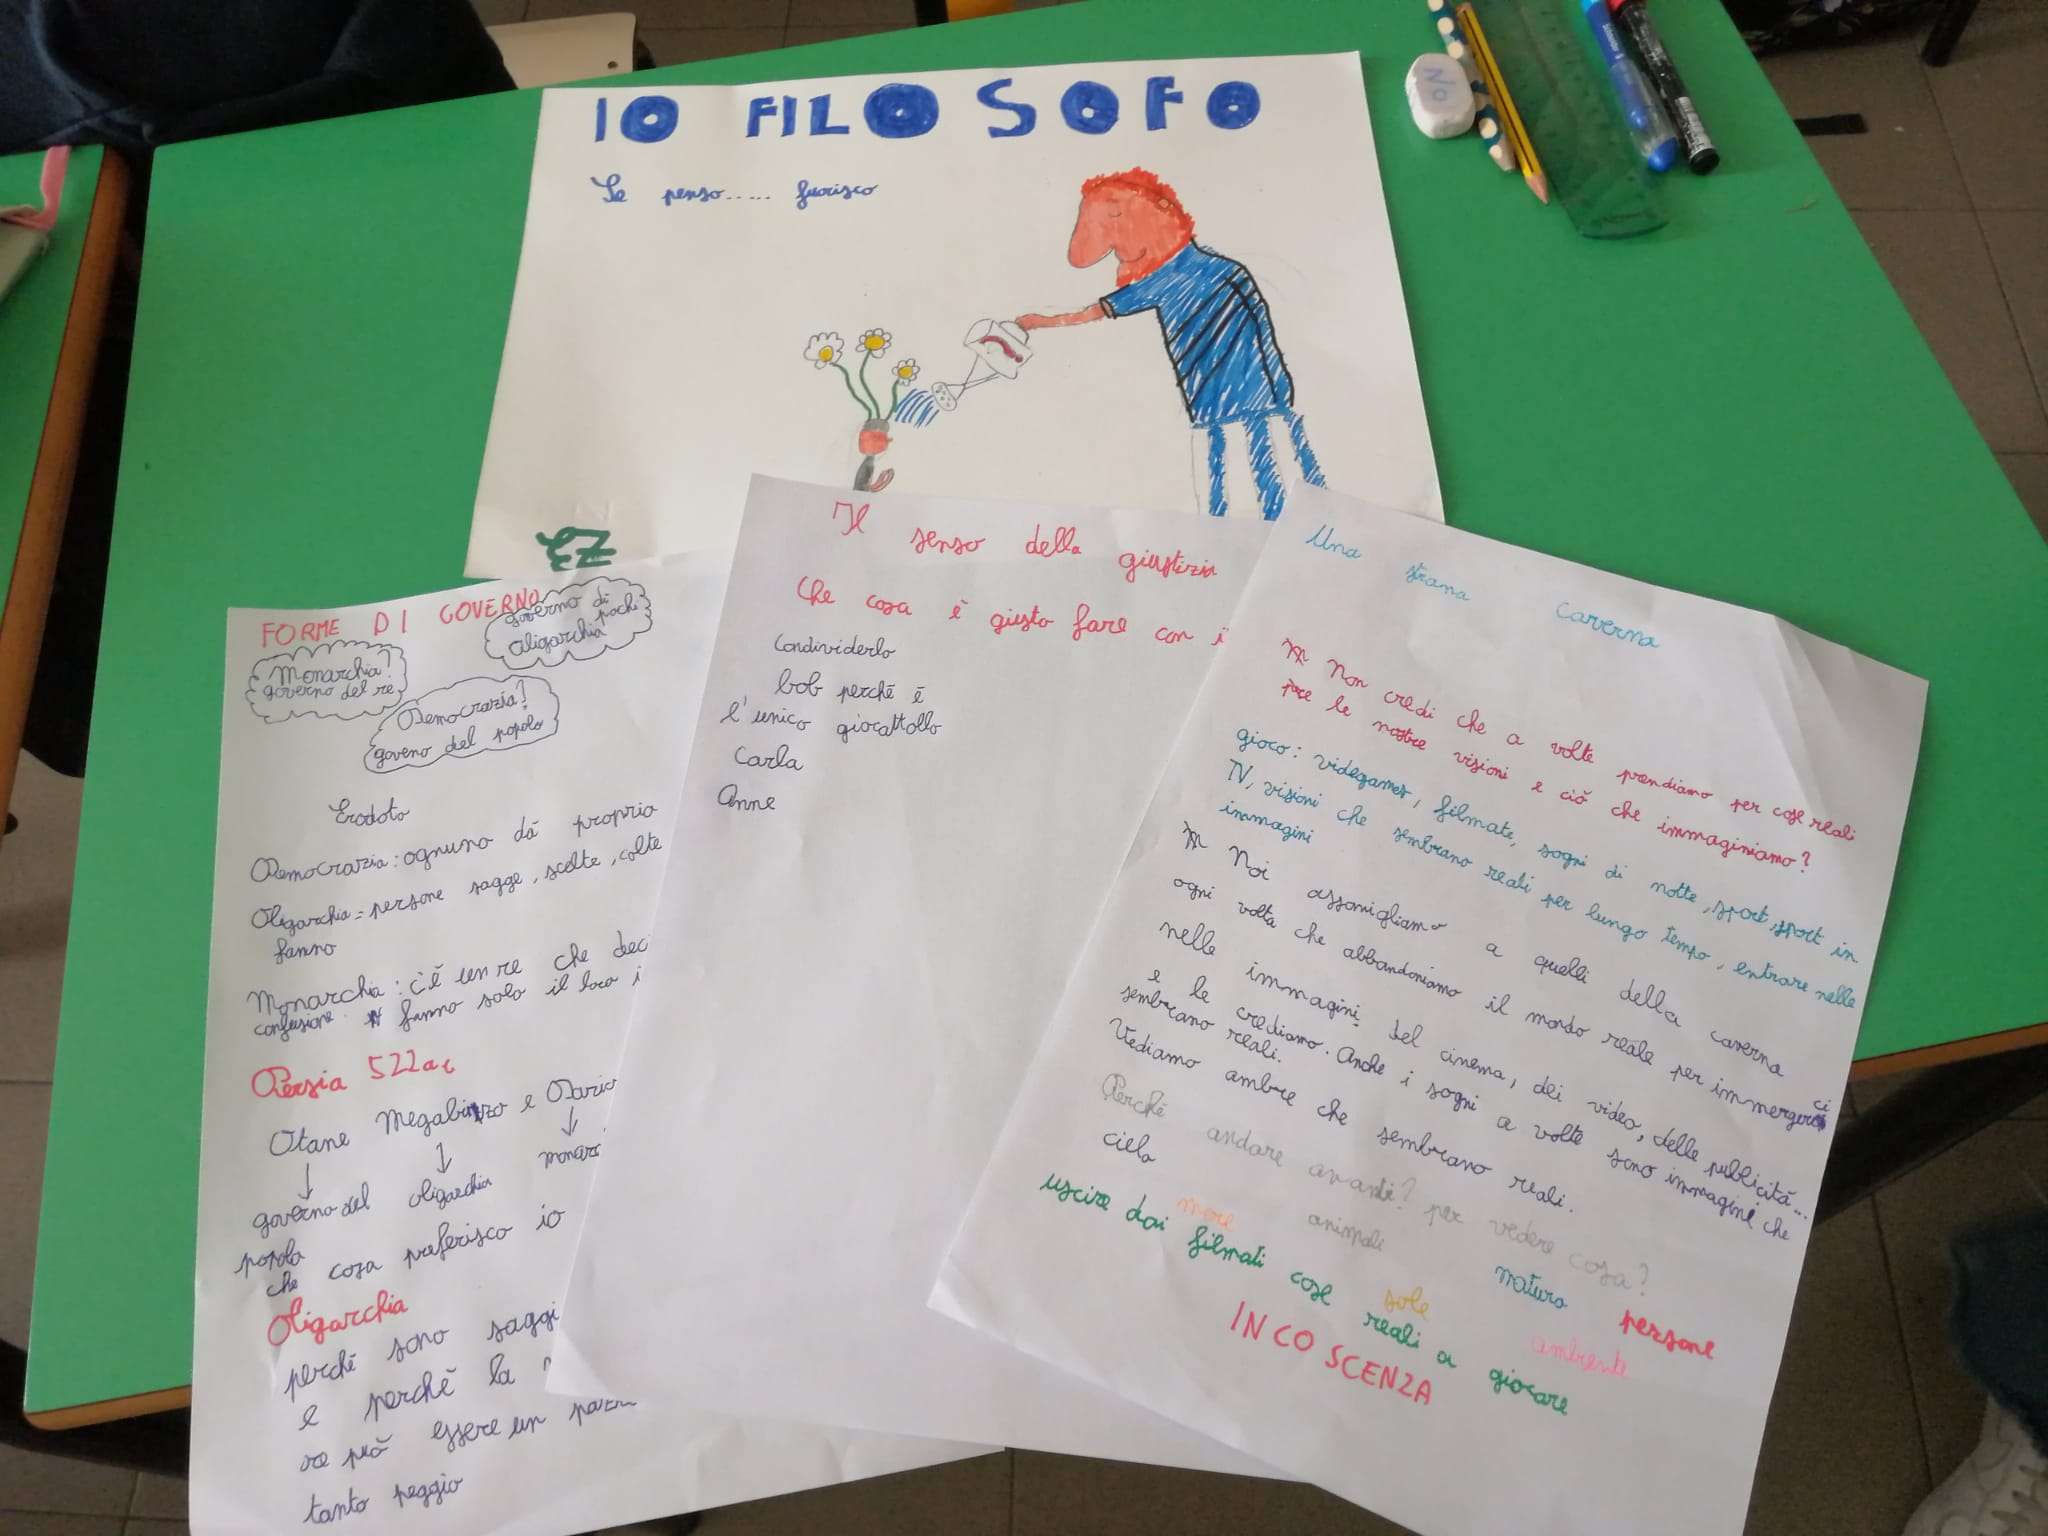 IO FILOSOFO
Se penso..... fiorisco
EZ
FORME DI GOVERNO
Governo di pochi
Oligarchia
Monarchia?
governo del re
Democrazia?
goveno del popolo
Erodoto
Democrazia: ognuno dà proprio
Oligarchia = persone sagge, scelte, colte
fanno
Monarchia: c'è un re che deci
confusione. fanno solo il loro i
Persia 522 a c
Otane Megabizo e Dario
governo del oligarchia monarc
popolo
che cosa preferisco io
Oligarchia
perché sono saggi
e perché la
re può essere un
tanto peggio
Il senso della giustizia
Che cosa è giusto fare con i
condividerlo
bob perché è
l'unico giocattollo
Carla
Anne
Una strana caverna
Non credi che a volte prendiamo per cose reali
le nostre visioni e ciò che immaginiamo?
gioco: videgames, filmate, sogni di notte, sport, sport in
TV, visioni che sembrano reali per lungo tempo, entrare nelle
immagini
Noi assomigliamo a quelli della caverna
ogni volta che abbandoniamo il mondo reale per immergerci
nelle immagini del cinema, dei video, delle pubblicità...
e le crediamo. Anche i sogni a volte sono immagini che
sembrano reali.
Vediamo ombre che sembrano reali.
Perché andare avanti? per vedere cosa?
cielo mare animali natura persone
uscire dai filmati cose reali a giocare
sole ambiente
IN CO SCENZA
No